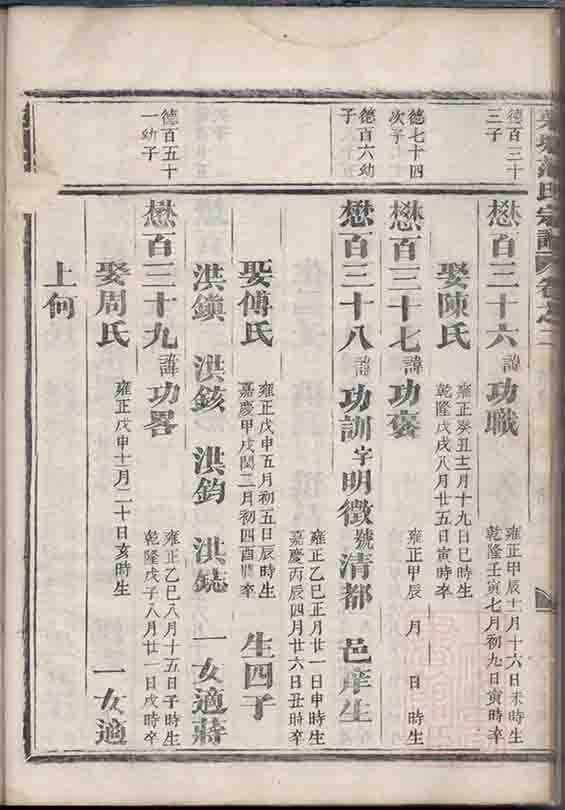 范氏宗譜 卷之二
德百三十三子
懋百三十六 諱功職 雍正甲辰十一月十六日未時生 乾隆壬寅七月初九日寅時卒
娶陳氏 雍正癸丑十二月十九日巳時生 乾隆戊戌八月廿五日寅時卒
德七十四次子
懋百三十七 諱功褒 雍正甲辰 月 日 時生
德百六幼子
懋百三十八 諱功訓 字明徵 號清都 邑庠生 雍正乙巳正月廿一日申時生 嘉慶丙辰四月廿六日丑時卒
娶傅氏 雍正戊申五月初五日辰時生 嘉慶甲戌閏二月初四酉時卒 生四子
洪鎮 洪鋑 洪鈞 洪鋕 一女適蔣
德百五十一幼子
懋百三十九 諱功畧 雍正乙巳八月十五日子時生 乾隆戊子八月廿一日戌時卒
娶周氏 雍正戊申十一月二十日亥時生 一女適
上何